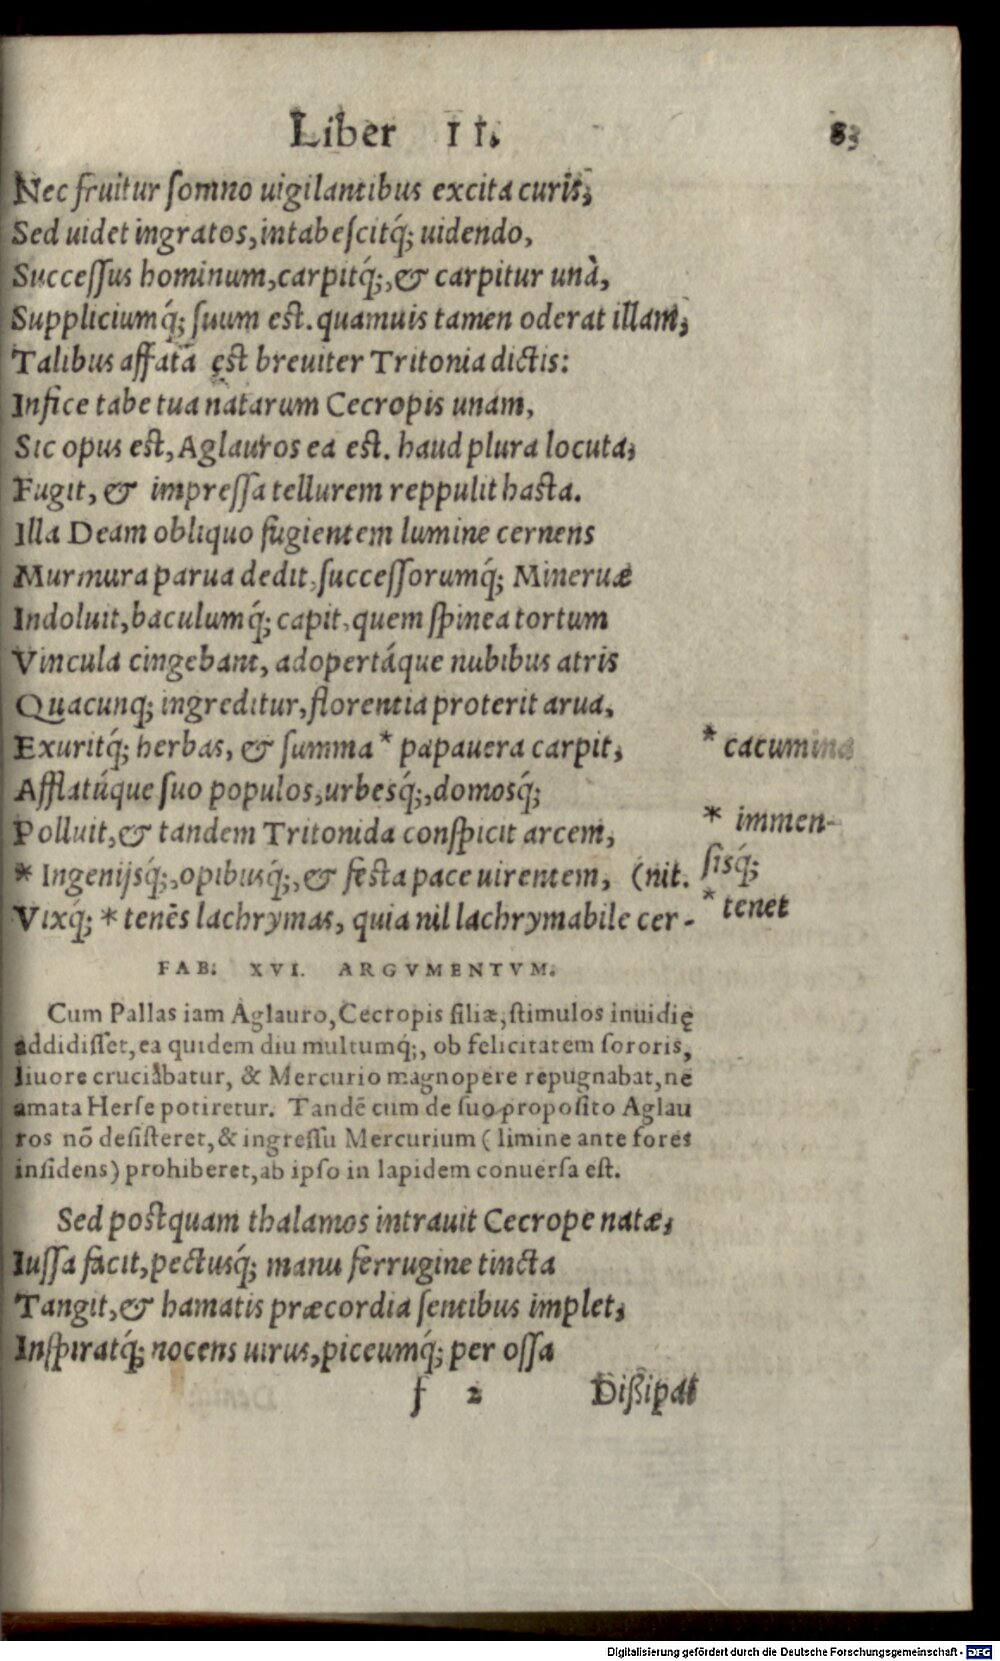 Liber II. 83
Nec fruitur ſomno uigilantibus excita curis;
Sed uidet ingratos, intabeſcitq́; uidendo,
Succeſſus hominum, carpitq́;, & carpitur unà,
Suppliciumq́; ſuum eſt. quamuis tamen oderat illam;
Talibus affata eſt breuiter Tritonia dictis:
Infice tabe tua natarum Cecropis unam,
Sic opus eſt, Aglauros ea eſt. haud plura locuta;
Fugit, & impreſſa tellurem reppulit haſta.
Illa Deam obliquo fugientem lumine cernens
Murmura parua dedit, ſucceſſorumq́; Mineruæ
Indoluit, baculumq́; capit, quem ſpinea tortum
Vincula cingebant, adopertáque nubibus atris
Quacunq; ingreditur, florentia proterit arua,
Exuritq́; herbas, & ſumma * papauera carpit; * cacumina
Afflatúque ſuo populos, urbesq́;, domosq́;
Polluit, & tandem Tritonida conſpicit arcem, * immen-
* Ingenijsq́;, opibusq́;, & feſta pace uirentem, (nit. ſisq́;
Vixq́; * tenēs lachrymas, quia nil lachrymabile cer- * tenet
FAB. XVI. ARGVMENTVM.
Cum Pallas iam Aglauro, Cecropis filiæ, ſtimulos inuidię
addidiſſet, ea quidem diu multumq́;, ob felicitatem ſororis,
liuore cruciabatur, & Mercurio magnopere repugnabat, ne
amata Herſe potiretur. Tandē cum de ſuo propoſito Aglau
ros nō deſiſteret, & ingreſſu Mercurium (limine ante fores
inſidens) prohiberet, ab ipſo in lapidem conuerſa eſt.
Sed poſtquam thalamos intrauit Cecrope natæ;
Iuſſa facit, pectusq́; manu ferrugine tincta
Tangit, & hamatis præcordia ſentibus implet;
Inſpiratq́; nocens uirus, piceumq́; per oſſa
f 2 Diſsipat
Digitalisierung gefördert durch die Deutsche Forschungsgemeinschaft - DFG